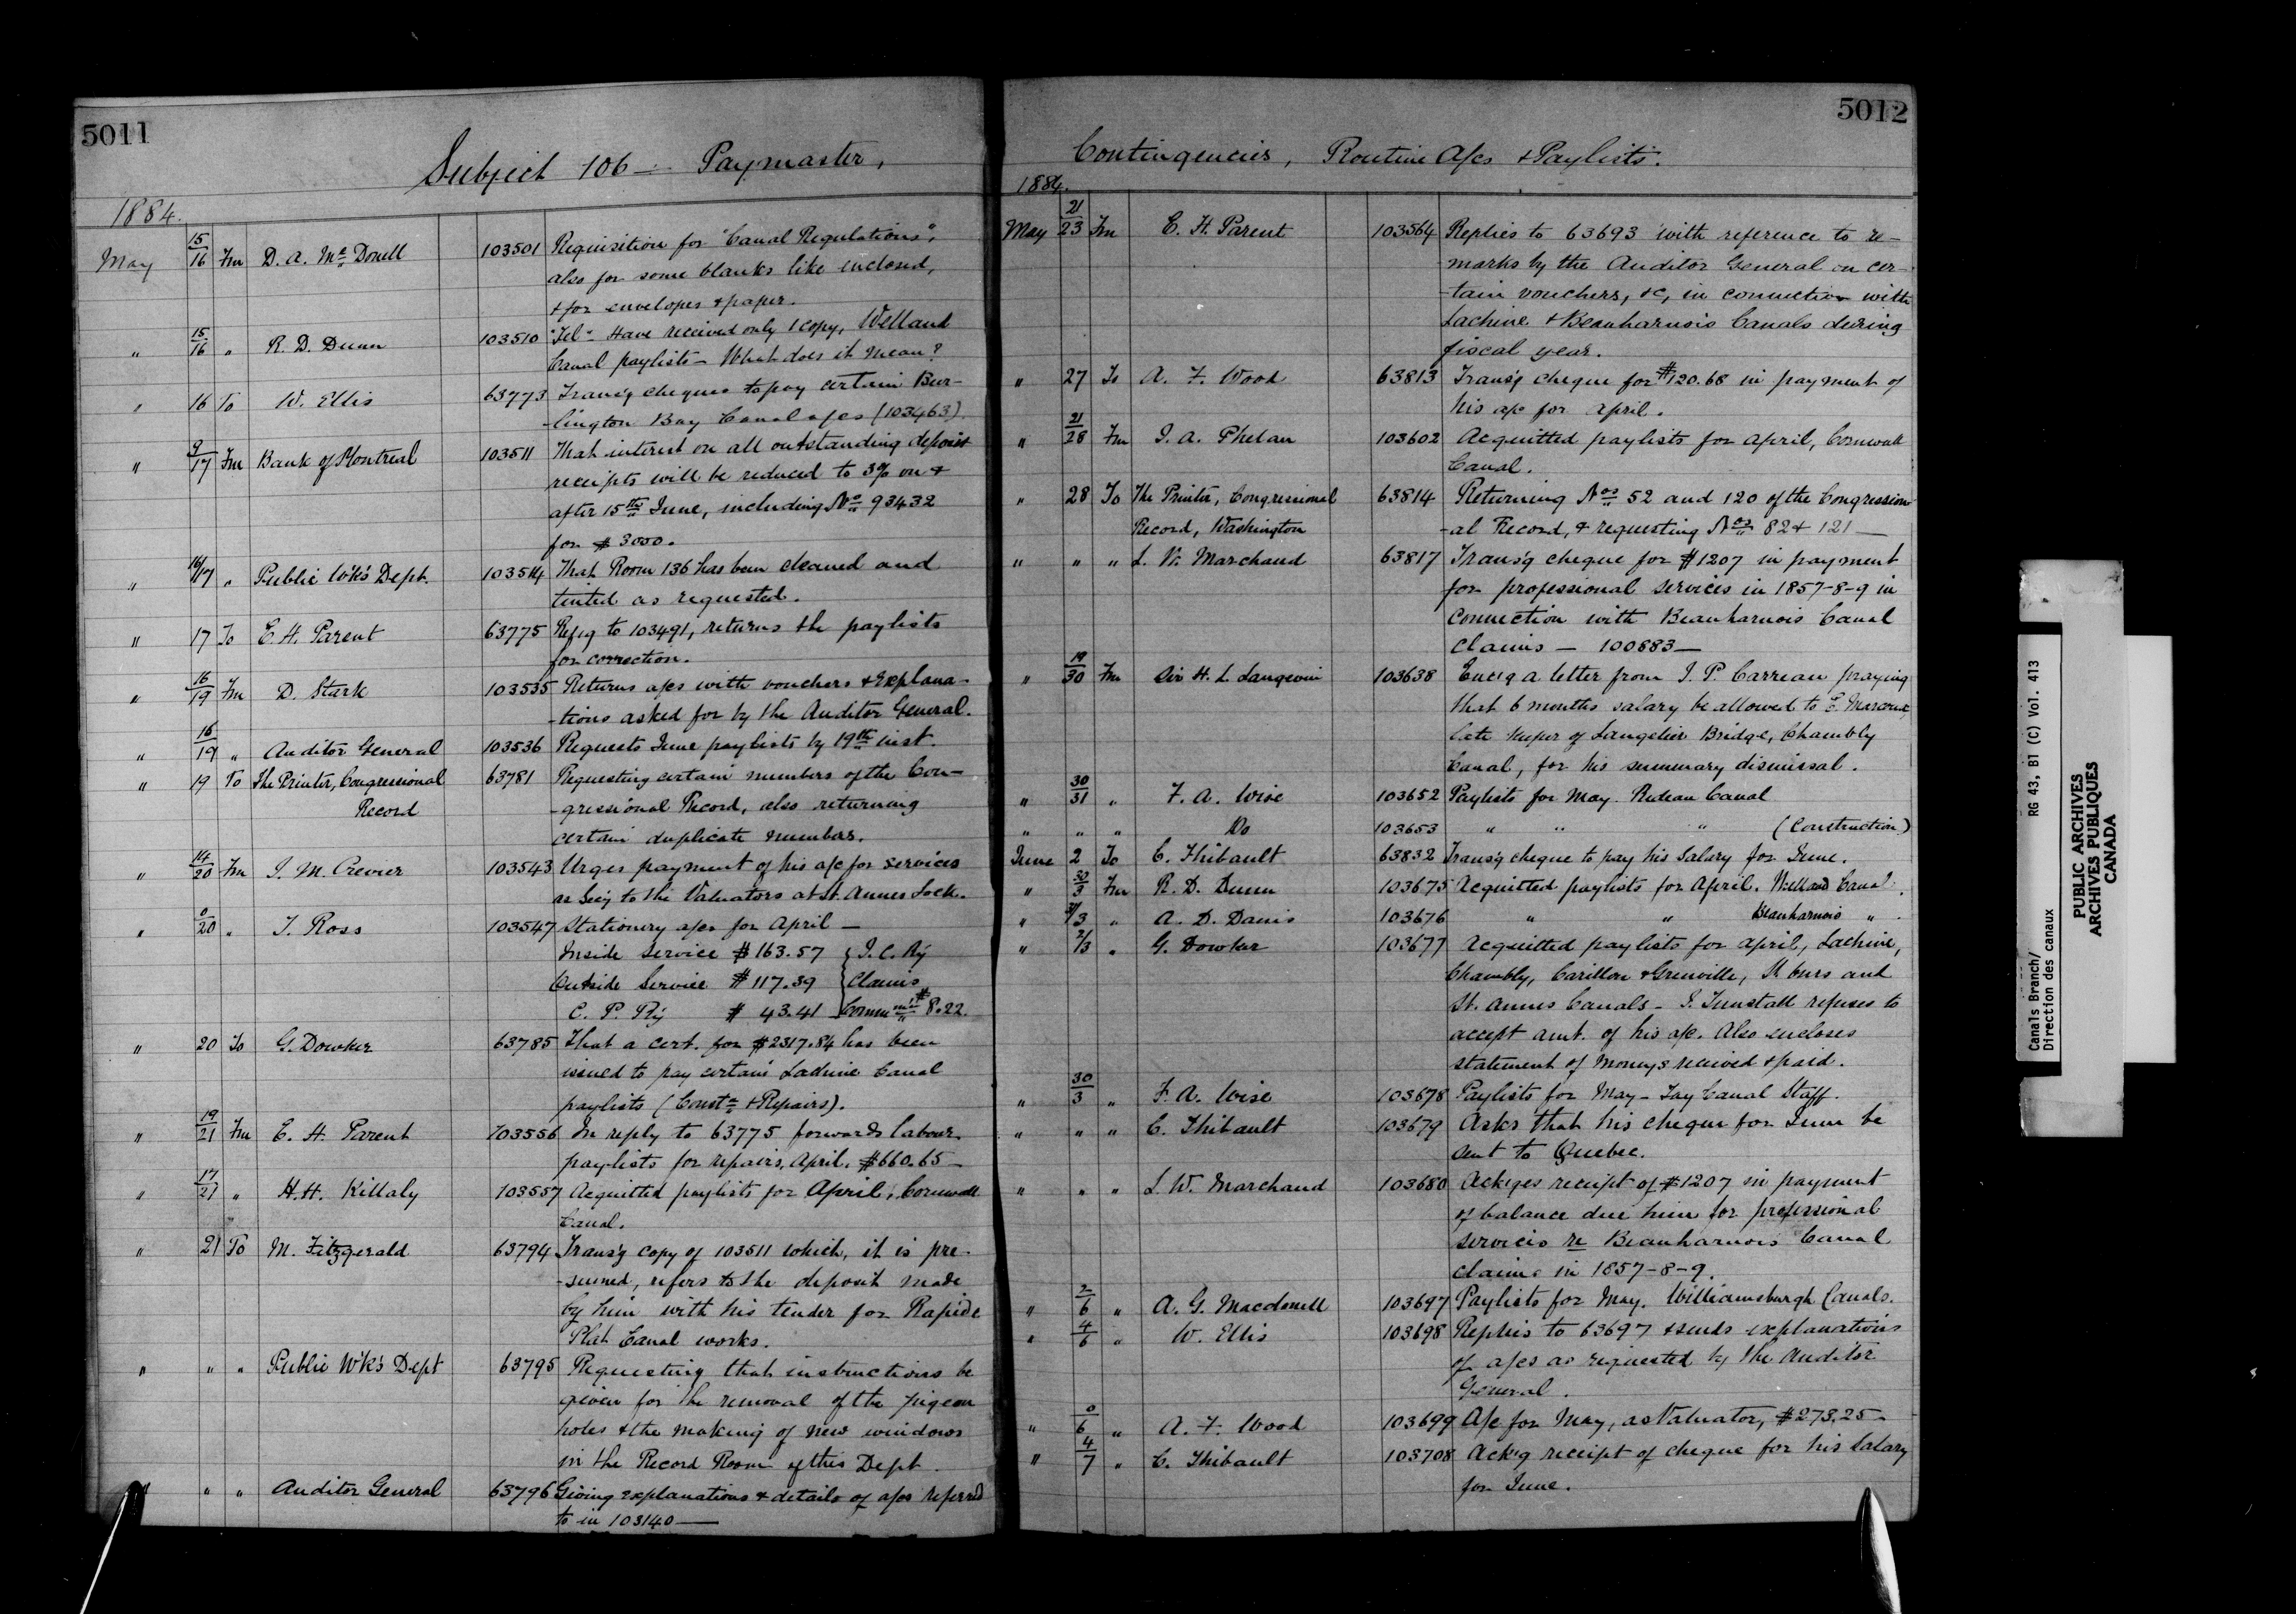 5011
Subject 106 — Paymaster,
1884.
May 15/16 Fm D. A. McDonell 103501 Requisition for "Canal Regulations",
also for some blanks like enclosed,
& for envelopes & paper.
" 15/16 " R. D. Dunn 103510 "Tel" Have received only 1 copy, Welland
Canal paylists — What does it mean?
" 16 To W. Ellis 63773 Trans'g cheques to pay certain Bur-
lington Bay Canal a/cs (103463).
" 9/17 Fm Bank of Montreal 103511 That interest on all outstanding deposit
receipts will be reduced to 3% on &
after 15th June, including No 93432
for $3000.
" 16/17 " Public Wk's Dept. 103514 That Room 136 has been cleaned and
tinted as requested.
" 17 To E. H. Parent 63775 Ref'g to 103491, returns the paylists
for correction.
" 16/19 Fm D. Stark 103535 Returns a/cs with vouchers & explana-
-tions asked for by the Auditor General.
" 16/19 " Auditor General 103536 Requests June paylists by 19th inst.
" 19 To The Printer, Congressional 63781 Requesting certain numbers of the Con-
Record -gressional Record, also returning
certain duplicate numbers.
" 14/20 Fm J. M. Crevier 103543 Urges payment of his a/c for services
as Sec'y to the Valuators at St. Annes Lock.
" 0/20 " J. Ross 103547 Stationery a/cs for April —
Inside Service $163.57 { I. C. Ry
Outside Service $117.39 Claims
C. P. Ry $ 43.41 Commn $8.22.
" 20 To G. Dowker 63785 That a cert. for $2317.84 has been
issued to pay certain Lachine Canal
paylists (Constn & Repairs).
" 19/21 Fm E. H. Parent 103556 In reply to 63775 forwards labour
paylists for repairs, April. $660.65 —
" 17/21 " H. H. Killaly 103557 Acquitted paylists for April, Cornwall
Canal.
" 21 To M. Fitzgerald 63794 Trans'g copy of 103511 which, it is pre-
-sumed, refers to the deposit made
by him with his tender for Rapide
Plat Canal works.
" " " Public Wk's Dept 63795 Requesting that instructions be
given for the removal of the pigeon
holes & the making of new windows
in the Record Room of this Dept.
" " " Auditor General 63796 Giving explanations & details of a/cs referred
to in 103140 —
5012
Contingencies, Routine A/cs & Paylists.
1884.
May 21/23 Fm E. H. Parent 103564 Replies to 63693 with reference to re-
marks by the Auditor General on cer-
-tain vouchers, &c, in connection with
Lachine & Beauharnois Canals during
fiscal year.
" 27 To A. F. Wood 63813 Trans'g cheque for $120.68 in payment of
his a/c for April.
" 21/28 Fm J. A. Phelan 103602 Acquitted paylists for April, Cornwall
Canal.
" 28 To The Printer, Congressional 63814 Returning Nos 52 and 120 of the Congression-
Record, Washington -al Record, & requesting Nos 82 & 121 —
" " " L. W. Marchand 63817 Trans'g cheque for $1207 in payment
for professional services in 1857-8-9 in
connection with Beauharnois Canal
Claims — 100883 —
" 19/30 Fm Sir H. L. Langevin 103638 Enc'g a letter from J. P. Carreau praying
that 6 months salary be allowed to E. Marcoux,
late keeper of Langelier Bridge, Chambly
Canal, for his summary dismissal.
" 30/31 " F. A. Wise 103652 Paylists for May. Rideau Canal
" " " Do 103653 " " " (Construction)
June 2 To C. Thibault 63832 Trans'g cheque to pay his Salary for June.
" 30/3 Fm R. D. Dunn 103675 Acquitted paylists for April. Welland Canal.
" 31/3 " A. D. Danis 103676 " " Beauharnois " .
" 2/3 " G. Dowker 103677 Acquitted paylists for April, Lachine,
Chambly, Carillon & Grenville, St Ours and
St. Annes Canals — J. Tunstall refuses to
accept amt. of his a/c. Also encloses
statement of moneys received & paid.
" 30/3 " F. A. Wise 103678 Paylists for May — Tay Canal Staff.
" " " C. Thibault 103679 Asks that his cheque for June be
sent to Quebec.
" " " L. W. Marchand 103680 Ackges receipt of $1207 in payment
of balance due him for professional
services re Beauharnois Canal
claims in 1857-8-9.
" 2/6 " A. G. Macdonell 103697 Paylists for May. Williamsburgh Canals.
" 4/6 " W. Ellis 103698 Replies to 63697 & sends explanations
of a/cs as requested by the Auditor
General.
" 0/6 " A. F. Wood 103699 A/c for May, as Valuator, $273.25 —
" 4/7 " C. Thibault 103708 Ack'g receipt of cheque for his Salary
for June.
Canals Branch/ RG 43, B1 (C) Vol. 413
Direction des canaux
PUBLIC ARCHIVES
ARCHIVES PUBLIQUES
CANADA